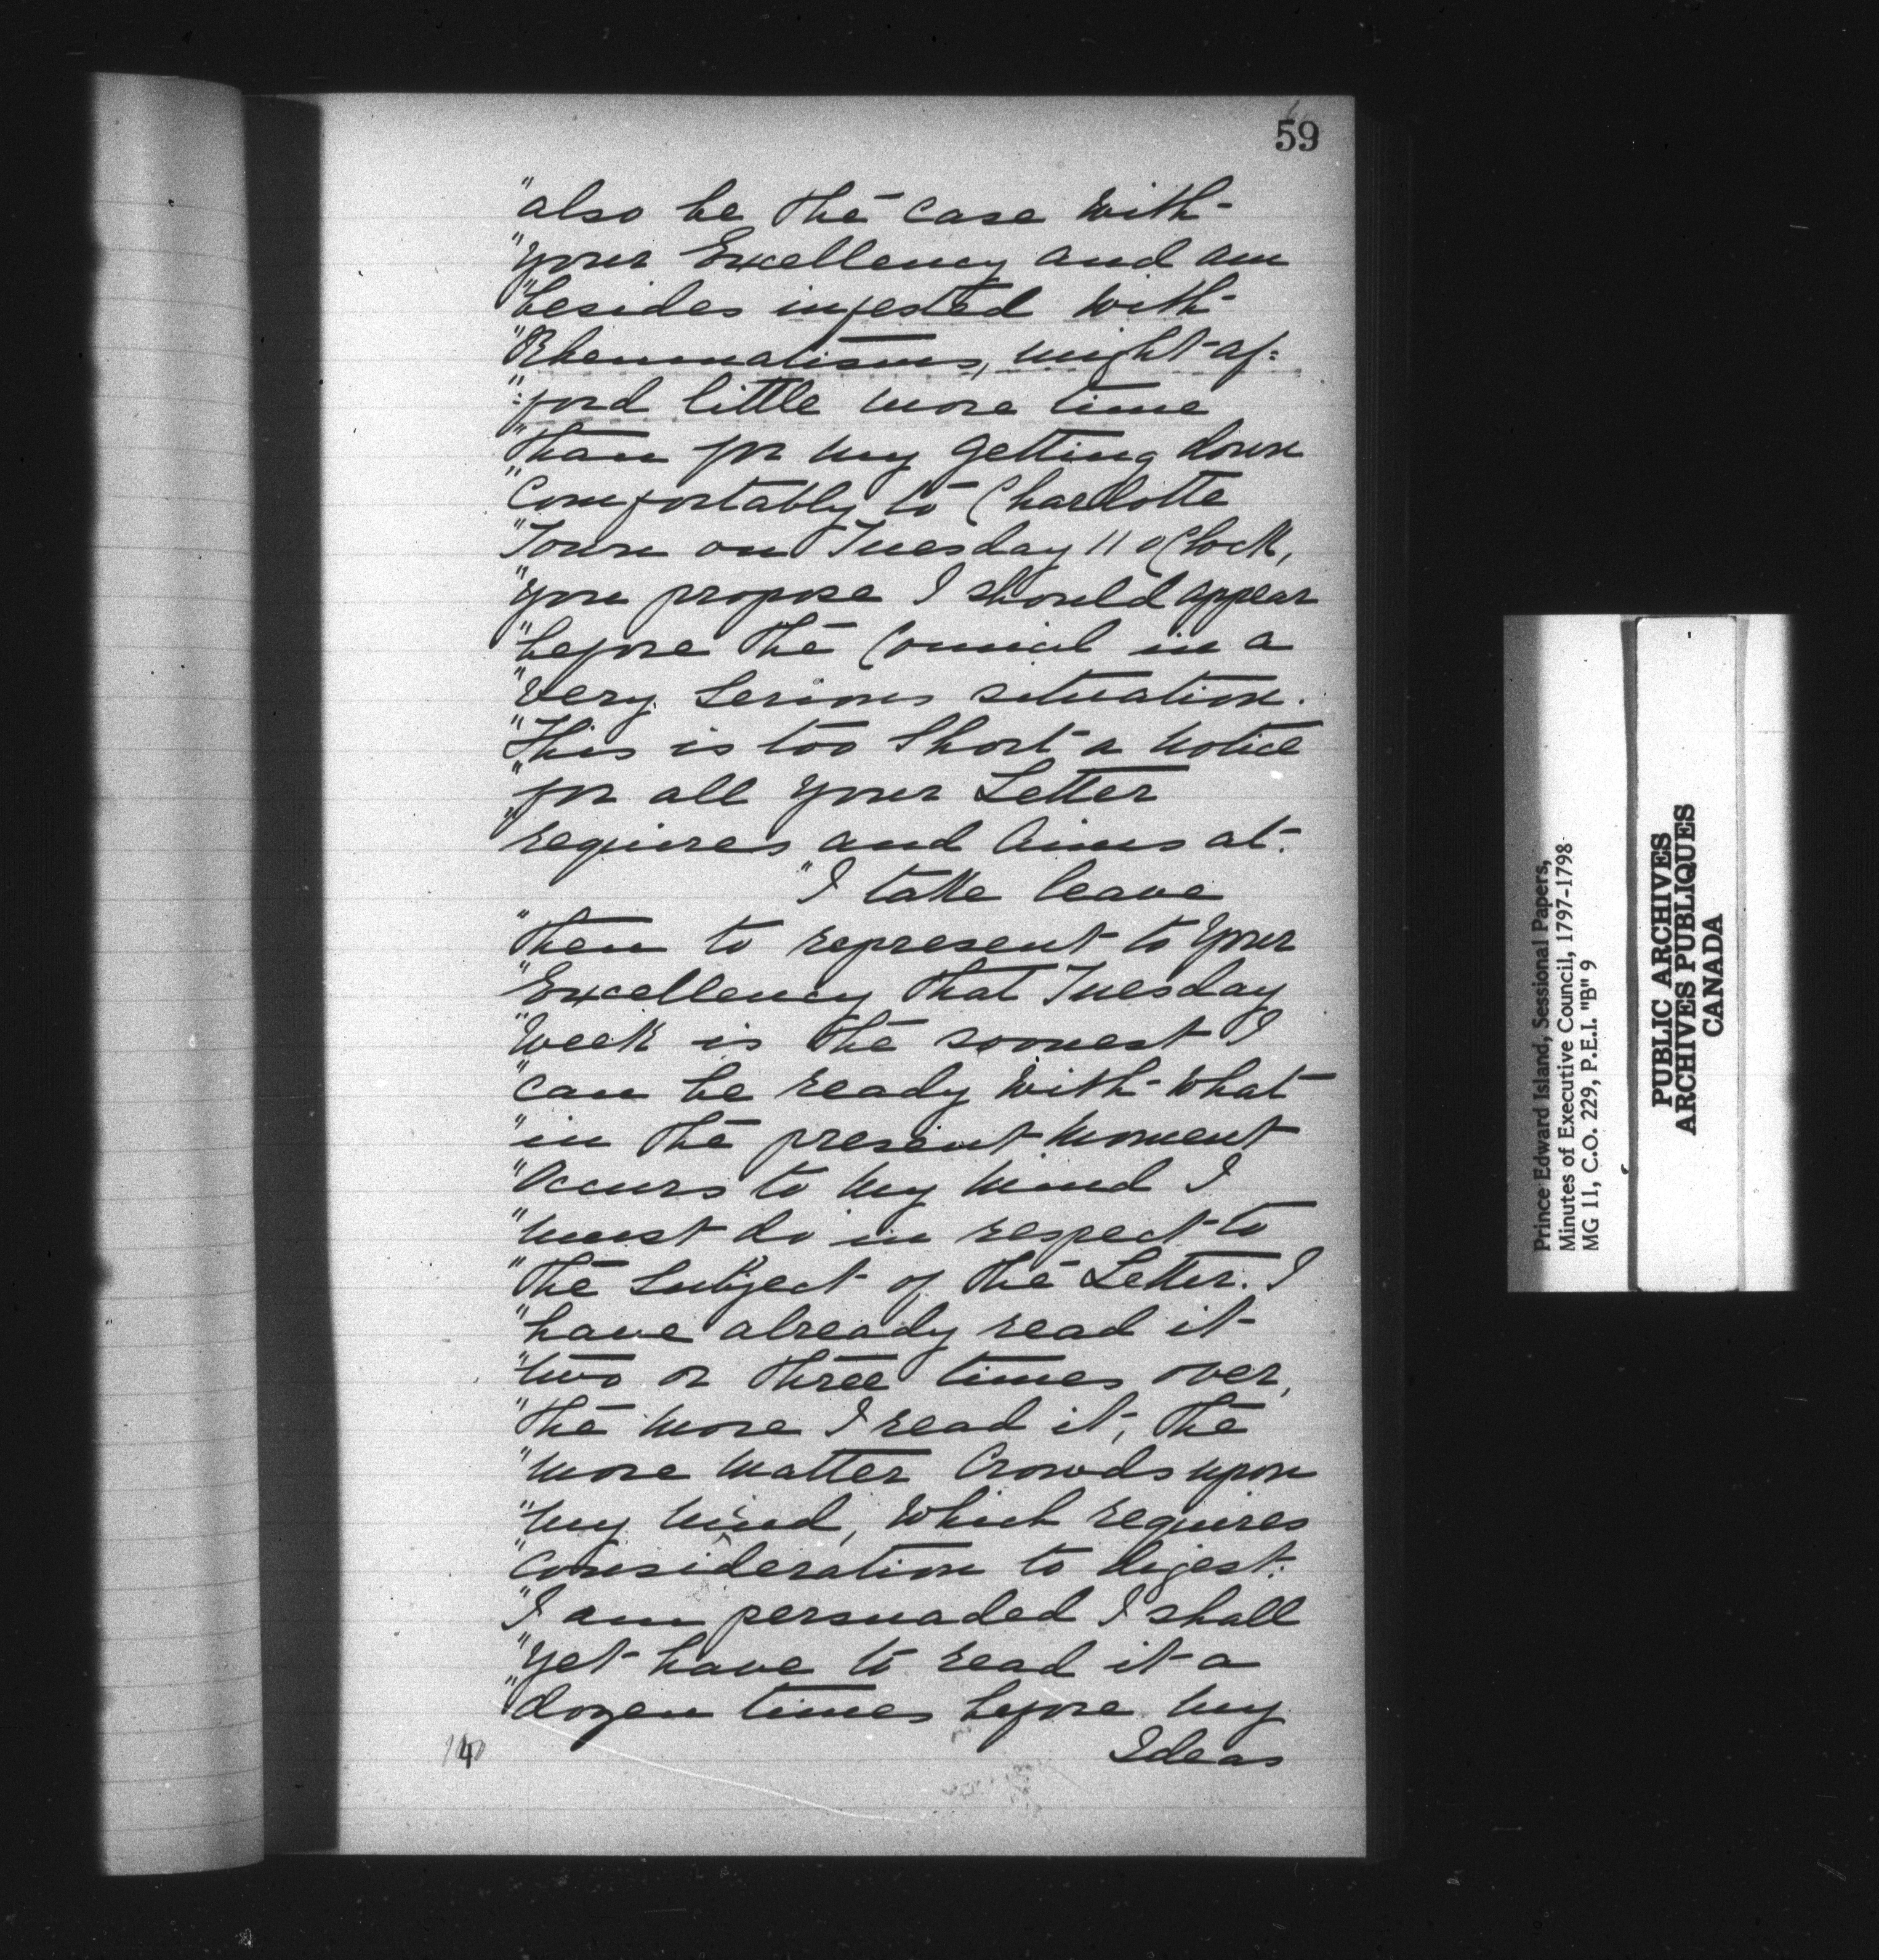 59
"also be the case with
"your Excellency and am
"besides infested with
"Rheumatisms, might af=
":ford little more time
"than for my getting down
"Comfortably to Charlotte
"Town on Tuesday 11 oClock,
"you propose I should appear
"before the Council in a
"very serious situation.
"This is too Short a notice
"for all your Letter
"requires and Aims at.
"I take leave
"then to represent to your
"Excellency that Tuesday
"week is the soonest I
"can be ready with what
"in the present moment
"Occurs to my mind I
"must do in respect to
"the Subject of the Letter. I
"have already read it
"two or three times over,
"the more I read it, the
"more matter Crowds upon
"my mind, which requires
"consideration to digest.
"I am persuaded I shall
"yet have to read it a
"dozen times before my
Ideas
Prince Edward Island, Sessional Papers,
Minutes of Executive Council, 1797-1798
MG 11, C.O. 229, P.E.I. "B" 9
PUBLIC ARCHIVES
ARCHIVES PUBLIQUES
CANADA